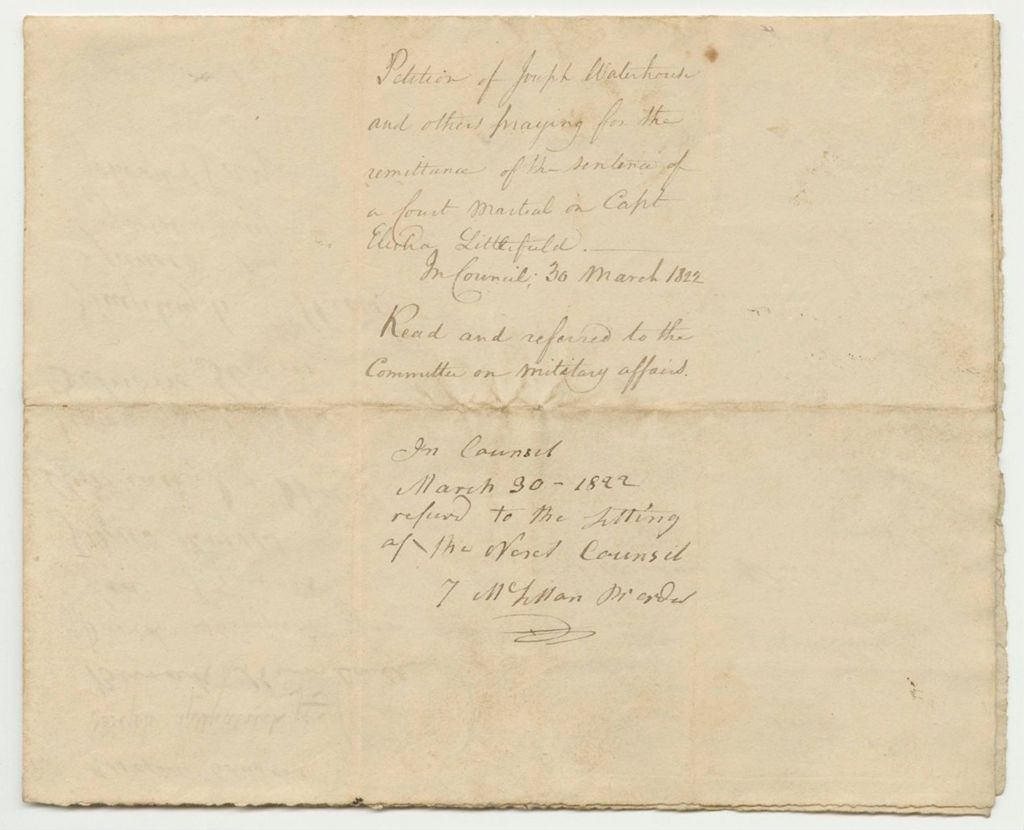 Petition of Joseph Waterhouse
and others praying for the
remittance of the sentence of
a Court Martial on Capt
Elisha Littlefield.
In Council, 30 March 1822
Read and referred to the
Committee on military affairs.
In Counsil
March 30 - 1822
referd to the Sitting
of the Next Counsil